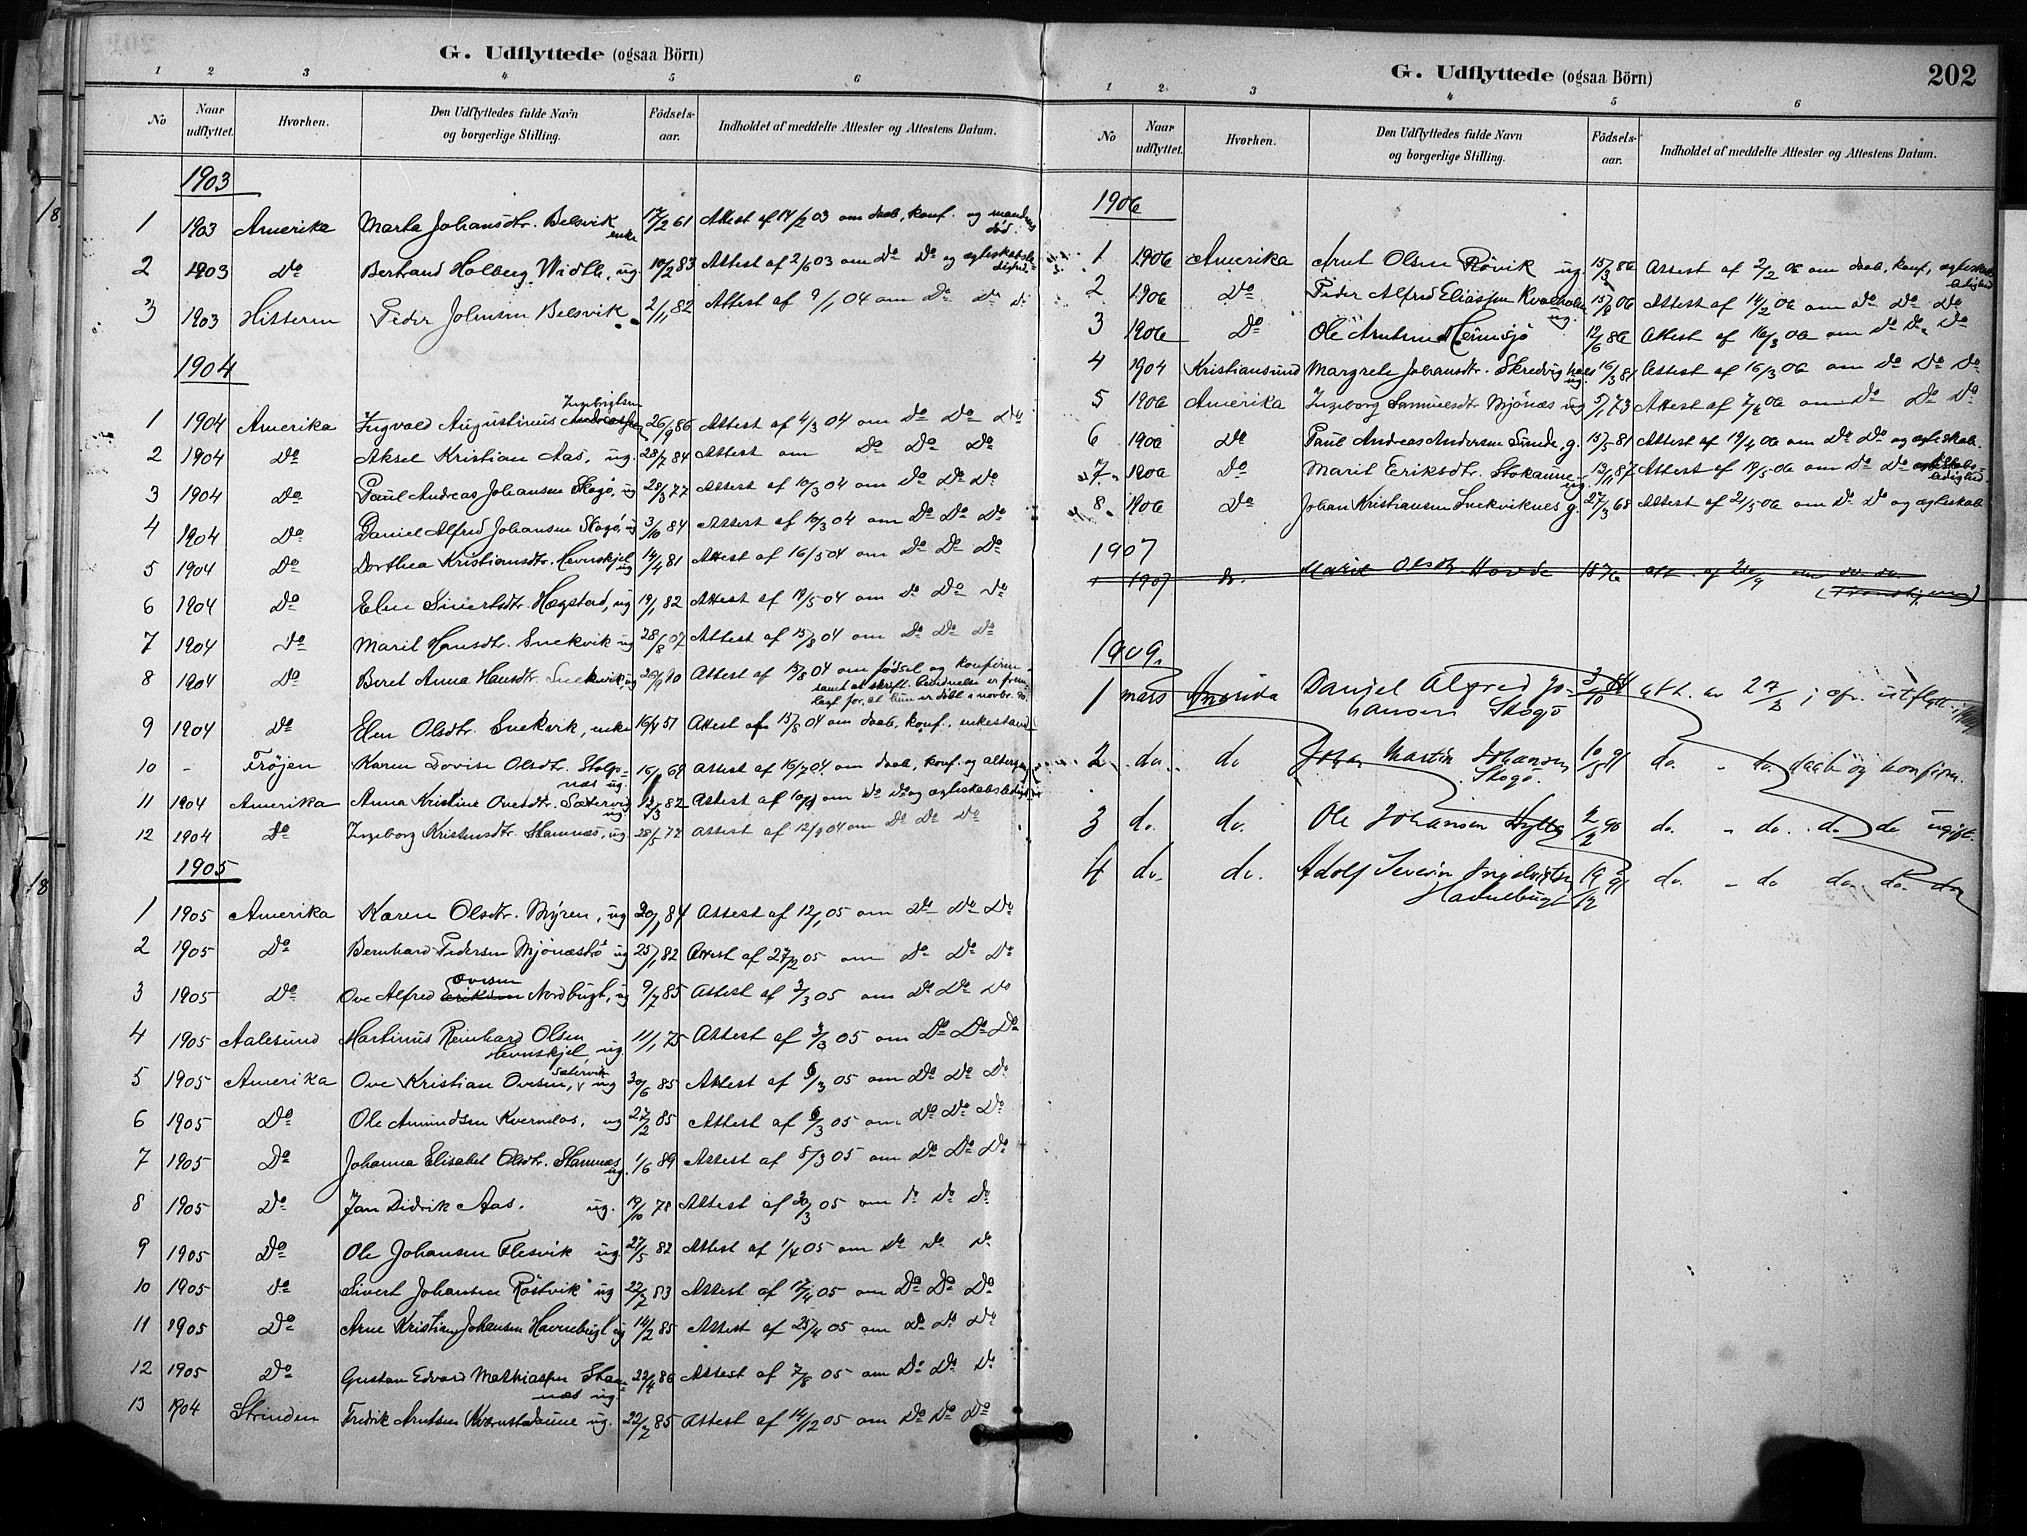 G. Udflyttede (ogsaa Börn)
1 2 3 4 5 6
No Naar udflyttet. Hvorhen. Den Udflyttedes fulde Navn og borgerlige Stilling. Födsels-aar. Indholdet af meddelte Attester og Attestens Datum.
1903
1 1903 Amerika Marta Johansdtr. Belsvik enke 17/2 61 Attest af 14/2 03 om daab, konf. og mandens död.
2 1903 Do Bertrand Holberg Widtle, ug. 10/2 83 Attest af 2/6 03 om Do Do og ægteskabsledighed
3 1903 Hitteren Peder Johnsen Belsvik 2/11 82 Attest af 9/1 04 om Do Do Do
1904
1 1904 Amerika Ingvald Augustinus Ingebrigtsen 26/9 86 Attest af 4/3 04 om Do Do Do
2 1904 Do Aksel Kristian Aas, ug. 28/7 84 Attest om Do Do Do
3 1904 Do Paul Andreas Johansen Skogö, ug 28/3 77 Attest af 10/3 04 om Do Do Do
4 1904 Do Daniel Alfred Johansen Skogö, ug 3/10 84 Attest af 10/3 04 om Do Do Do
5 1904 Do Dorthea Kristiansdtr. Hevnskjel ug 14/4 81 Attest af 16/5 04 om Do Do Do
6 1904 Do Elen Sivertsdtr. Hægstad, ug 19/1 82 Attest af 19/5 04 om Do Do Do
7 1904 Do Marit Hansdtr. Snekvik ug 28/8 07 Attest af 15/8 04 om Do Do Do
8 1904 Do Beret Anna Hansdtr. Snekvik, ug 26/9 90 Attest af 15/8 04 om födsel og konfirm-
samt at skriftl. bevidnelse er frem-
lagt for, at hun er döbt i novbr. 90.
9 1904 Do Elen Olsdtr. Snekvik, enke 16/4 51 Attest af 15/8 04 om daab, konf., enkestand
10 - Fröjen Karen Lovise Olsdtr. Stolpnæs ug. 16/1 69 Attest af 16/7 04. om daab, konf. og altergang
11 1904 Amerika Anna Kristine Ovesdtr. Sætervig ug. 13/3 82 Attest af om Do Do og ægteskabsledighed
12 1904 Do Ingeborg Kristensdtr. Stamnæs, ug. 28/5 77 Attest af 12/9 04 om Do Do Do
1905
1 1905 Amerika Karen Olsdtr. Myren, ug 20/1 84 Attest af 12/1 05 om Do Do Do
2 1905 Do Bernhard Pedersen Mjönæströ ug 25/1 82 Attest af 27/2 05 om Do Do Do
3 1905 Do Ove Alfred Eriksen Ovesen Nordbugt, ug 9/7 85 Attest af 3/3 05 om Do Do Do
4 1905 Aalesund Martinus Reinhard Olsen Hevnskjel, ug. 11/1 75 Attest af 3/3 05 om Do Do Do
5 1905 Amerika Ove Kristian Ovesen, Sætervik ug 30/6 85 Attest af 6/3 05 om Do Do Do
6 1905 Do Ole Amundsen Kvernlos, ug 27/2 85 Attest af 6/3 05 om Do Do Do
7 1905 Do Johanna Elisabet Olsdtr. Stamnæs ug. 1/6 89 Attest af 8/3 05 om Do Do Do
8 1905 Do Jan Didrik Aas. ug. 19/10 78 Attest af 20/3 05 om Do Do Do
9 1905 Do Ole Johansen Flesvik ug 27/5 82 Attest af 1/4 05 om Do Do Do
10 1905 Do Sivert Johansen Röstvik ug 22/7 83 Attest af 17/4 05 om Do Do Do
11 1905 Do Arne Kristian Johansen Havnebugt ug 14/2 85 Attest af 25/4 05 om Do Do Do
12 1905 Do Gustav Edvard Mathiassen Stamnæs ug 22/4 86 Attest af 7/8 05 om Do Do Do
13 1904 Strinden Fredrik Arntsen ug. 22/7 85 Attest af 14/12 05 om Do Do Do
G. Udflyttede (ogsaa Börn) 202
1 2 3 4 5 6
No Naar udflyttet. Hvorhen. Den Udflyttedes fulde Navn og borgerlige Stilling. Födsels-aar. Indholdet af meddelte Attester og Attestens Datum.
1906
1 1906 Amerika Arnt Olsen Rövik ug. 15/3 86 Attest af 2/2 06 om daab, konf, ægteskabsledighed
2 1906 Do Peder Alfred Eliassen Kvalholm ug. 15/8 06 Attest af 14/2 06 om Do Do Do
3 1906 Do Ole Arntsen Hemsjö 12/6 86 Attest af 16/3 06 om Do Do Do
4 1904 Kristiansund Margrete Johansdtr. Skredvig ug. 16/3 81 Attest af 16/3 06 om Do Do Do
5 1906 Amerika Ingeborg Samuelsdtr Mjönæs ug 5/1 73 Attest af 7/4 06 om Do Do Do
6 1906 Do Paul Andreas Andersen Sunde, g. 15/5 81 Attest af 19/4 06 om Do Do og ægteskab.
7 1906 Do Marit Eriksdtr. Stokaune ug. 13/11 87 Attest af 19/5 06 om Do Do ægteskabsledighed
8 1906 Do Johan Kristiansen Snekviknes g. 27/3 68 Attest af 21/5 06 om Do Do og ægteskab
1907
1 1907 do. Marit Olsdtr Hovde 1876 att. af 20/9 om do. do.
1909.
1 mars Amerika Daniel Alfred Johansen Skogö 3/10 84 att. av 27/2 i afr. utflytt.
2 do. do Johan Martin Johansen Skogö. 10/5 91 do. " do. daab og konfirm.
3 do. do. Ole Johansen Hylla 2/2 90 do. " do. do. do ugift.
4 do. do. Adolf Severin Ingebrigtsen Havnebugt 19/12 91 do. " do do. do. do